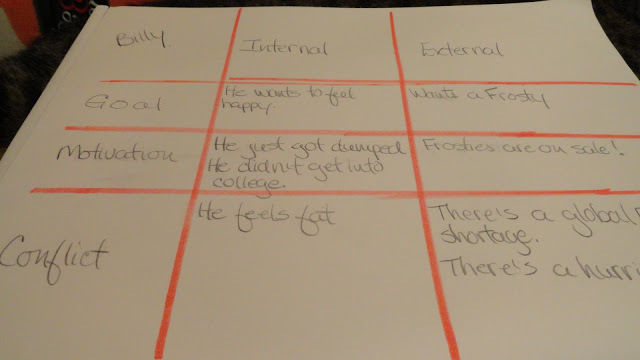 Billy.
Internal
External
Goal
He wants to feel
happy.
Wants a Frosty
Motivation
He just got dumped
He didn't get into
college.
Frosties are on sale!
Conflict
He feels fat
There's a global
shortage.
There's a hurri